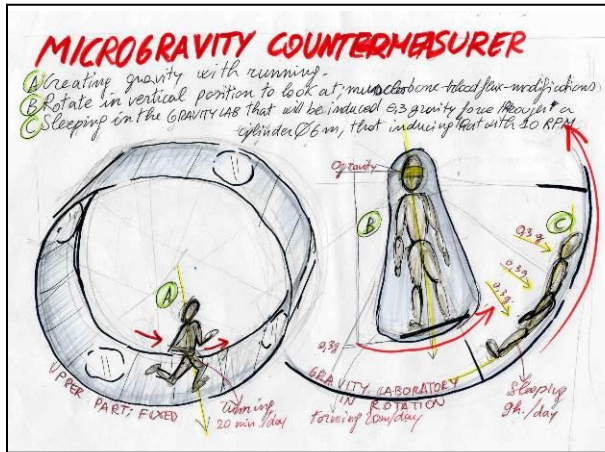 MICROGRAVITY COUNTERMEASURER
A Creating gravity with running.
B Rotate in vertical position to look at muscle-bone-blood flux-modifications
C Sleeping in the GRAVITY LAB that will be induced 0,3 gravity force through a
cylinder Ø 6m, that inducing that with 10 RPM
0 gravity
B
C
0,3g
0,3g
0,3g
A
0,3g
UPPER PART: FIXED
running
20 min./day
GRAVITY LABORATORY
IN ROTATION
20m/day
Sleeping
9h./day